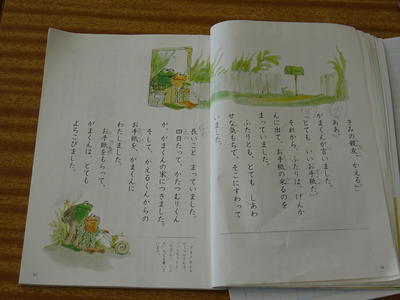 きみの親友、かえる。」
「ああ。」
がまくんが言いました。
「とても いいお手紙だ。」
それから、ふたりは、げんか
んに出て、お手紙の来るのを
まっていました。
ふたりとも、とても しあわ
せな気もちで、そこにすわって
いました。
長いこと まっていました。
四日たって、かたつむりくん
が、がまくんの家につきました。
そして、かえるくんからの
お手紙を、がまくんに
わたしました。
お手紙をもらって、
がまくんは、とても
よろこびました。